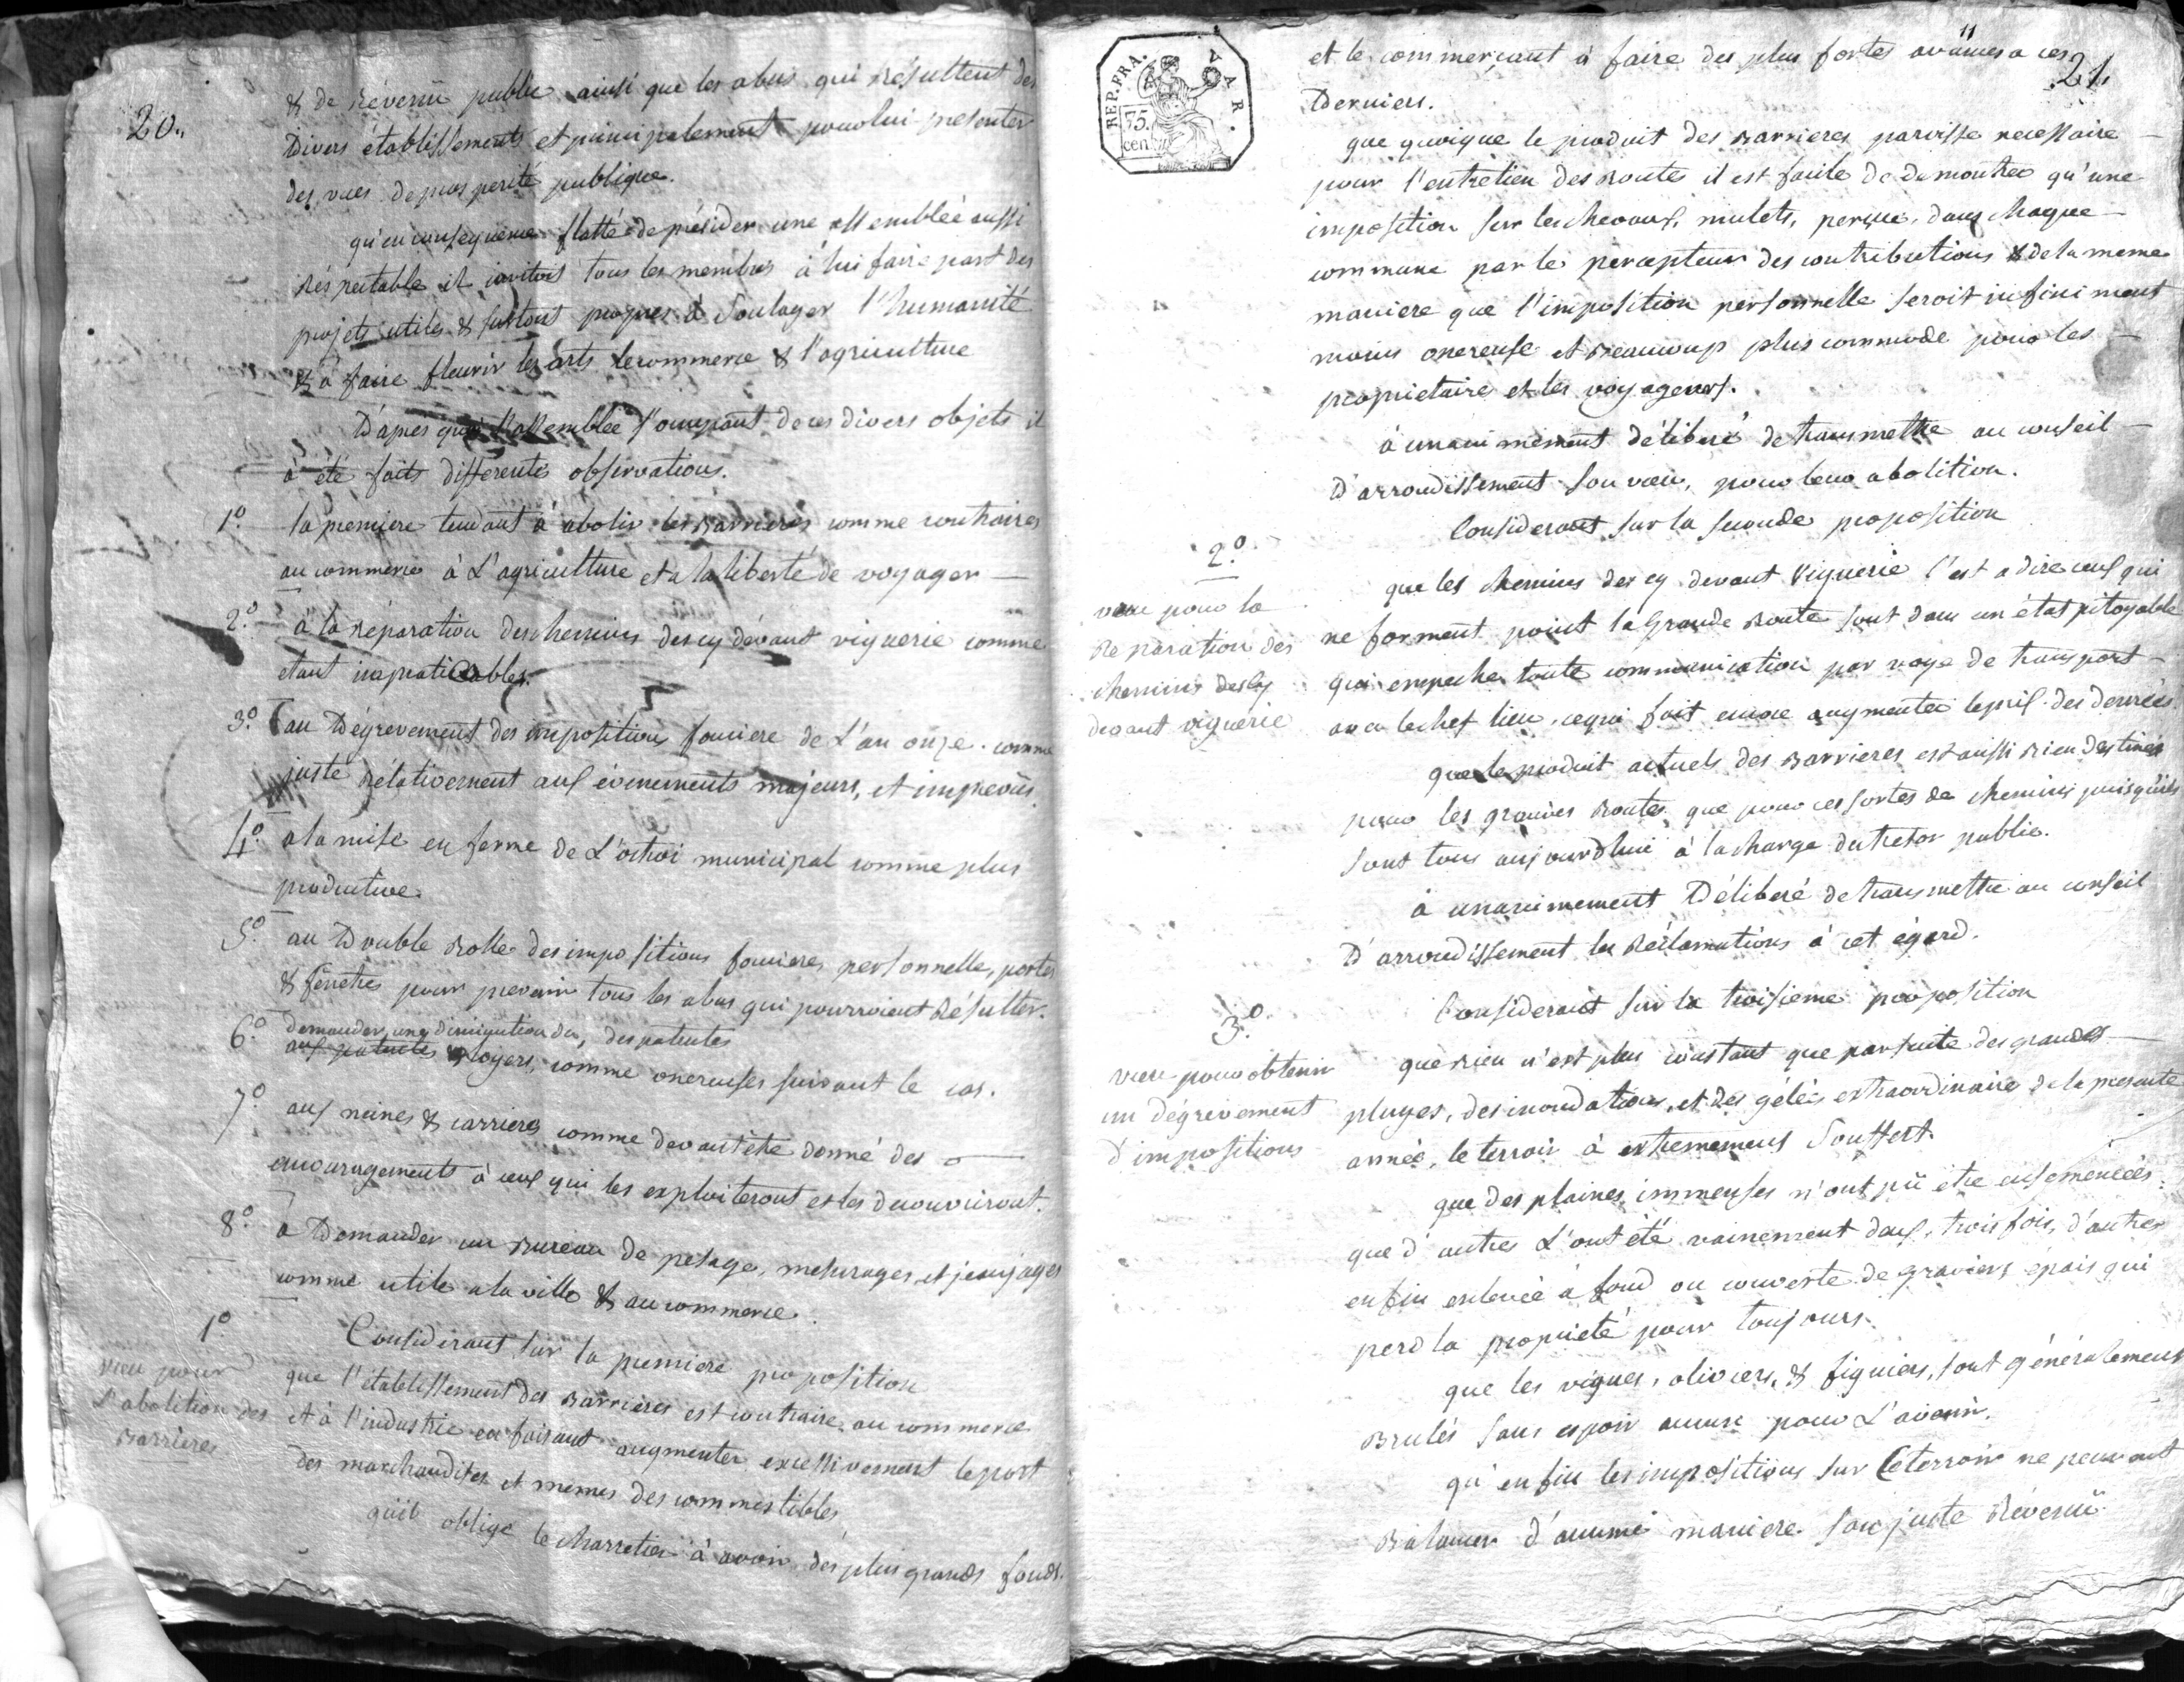 20.,
& de Révenu public ainsi que les abus qui résultent des
Divers établissements et principalement pour lui présenter
des vues de prospérité publique.
qu'en conséquence flatté de présider une assemblée aussi
Réspectable il invitoit tous les membres à lui faire part des
projets utiles & surtout propres à Soulager l'humanité
& a faire fleurir les arts le commerce & l'agriculture
D'apres quoi l'assemblée s'occupant de ces divers objets il
à été faits differentes observations.
1.º la premiere tendant à abolir les Barrieres comme contraires
au commerce à L'agriculture et a la liberté de voyager —
2.º à la Réparation des chemins des cy dévant viguerie comme
etant impraticables.
3.º au Dégrevement des impositions fonciere de L'an onze. comme
juste Rélativement aux évenements majeurs, et imprevûs.
4.º a la mise en ferme de L'octroi municipal comme plus
productive.
5.º au Double Rolle des impositions foncieres, personnelle, portes
& fenêtres pour prevenir tous les abus qui pourroient Résulter.
6.º demander une diminution des patentes
aux patentes & loyers, comme onereuses suivant le cas.
7.º aux mines & carrieres comme devant être donné des —
encouragements à ceux qui les exploiteront et les decouvriront.
8.º à Demander un Bureau de pesage, mesurages, et jeaujages
comme utile a la ville & au commerce.
1.º Considérant sur la premiere proposition
vœu pour
L'abolition des
Barrieres
que l'établissement des Barrieres est contraire au commerce
et à l'industrie en faisant augmenter excessivement le port
des marchandises et memes des commestibles
qu'il oblige le charretier à avoir des plus grands fonds.
REP. FRA. VAR.
75.
cen
11
21.
et le commerçant à faire des plus fortes avances a ces
Derniers.
que quoique le produit des Barrieres paroisse necessaire —
pour l'entretien des Routes il est facile de demontrer qu'une
imposition sur les chevaux, mulets, perçue, dans chaque —
commune par le percepteur des contributions & de la meme
maniere que l'imposition personnelle seroit infiniment
moins onereuse et Beaucoup plus commode pour les —
proprietaires et les voyageurs.
à unanimement délibéré de transmettre au conseil —
D'arrondissement son vœu, pour leur abolition.
Considerant sur la seconde proposition
2.º
vœu pour la
Reparation des
chemins des cy
devant viguerie
que les chemins des cy devant Viguerie c'est a dire ceux qui
ne forment point la grande Route sont dans un état pitoyable
qui empeche toute communication par voye de transport —
avec le chef lieu, ce qui fait encore augmenter le prix des denrées
que le produit actuels des Barrieres est aussi Bien destinés
pour les grandes Routes que pour ces sortes de chemins puisqu'ils
sont tous aujourdhui à la charge du tresor public.
à unanimement Délibéré de transmettre au conseil
D'arrondissement les Réclamations à cet égard.
Considerant sur la troisieme proposition
3.º
vœu pour obtenir
un dégrevement
d'impositions
que Rien n'est plus constant que par suite des grandes —
pluyes, des inondations, et des gélées extraordinaire de la presente
année, le terroir à extremement Souffert.
que des plaines immenses n'ont pû etre ensemencées.
que d'autres L'ont été vainement deux, trois fois, d'autres
enfin enlevée à fond ou couverte de graviers épais qui
perd la proprieté pour toujours.
que les vignes, oliviers, & figuiers, sont généralement
Brulés sans espoir aucune pour L'avenir.
qu'enfin les impositions sur Ce terroir ne peuvent
Balancer d'aucune maniere son juste Révenû